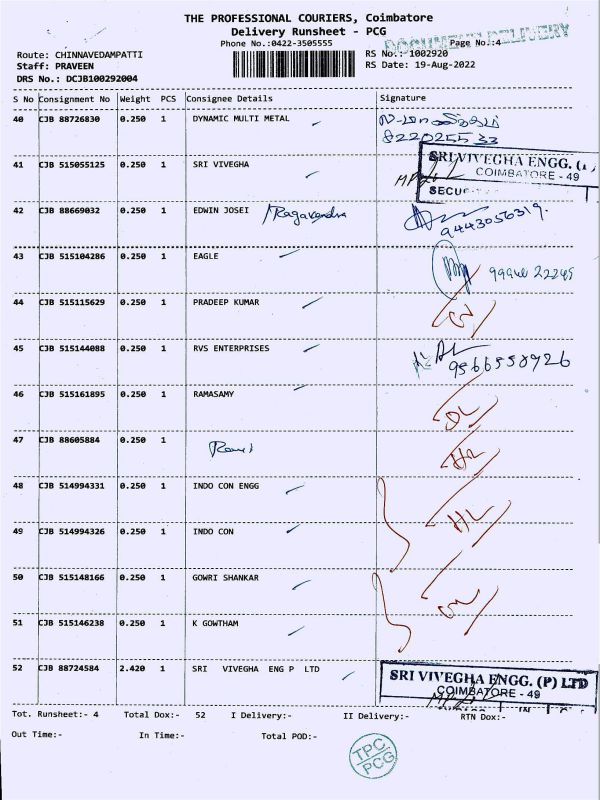 THE PROFESSIONAL COURIERS, Coimbatore
Delivery Runsheet - PCG
DOCUMENT DELIVERY
Phone No.:0422-3505555 Page No.:4
Route: CHINNAVEDAMPATTI RS No.: 1002920
Staff: PRAVEEN RS Date: 19-Aug-2022
DRS No.: DCJB100292004
S No Consignment No Weight PCS Consignee Details Signature
40 CJB 88726830 0.250 1 DYNAMIC MULTI METAL
8220255 33
41 CJB 515055125 0.250 1 SRI VIVEGHA
SRI VIVEGHA ENGG. (
COIMBATORE - 49
42 CJB 88669032 0.250 1 EDWIN JOSEI Ragavendra
9443056319.
43 CJB 515104286 0.250 1 EAGLE
44 CJB 515115629 0.250 1 PRADEEP KUMAR
45 CJB 515144088 0.250 1 RVS ENTERPRISES
9566558926
46 CJB 515161895 0.250 1 RAMASAMY
47 CJB 88605884 0.250 1
48 CJB 514994331 0.250 1 INDO CON ENGG
49 CJB 514994326 0.250 1 INDO CON
50 CJB 515148166 0.250 1 GOWRI SHANKAR
51 CJB 515146238 0.250 1 K GOWTHAM
52 CJB 88724584 2.420 1 SRI VIVEGHA ENG P LTD
SRI VIVEGHA ENGG. (P) LTD
COIMBATORE - 49
Tot. Runsheet:- 4 Total Dox:- 52 I Delivery:- II Delivery:- RTN Dox:-
Out Time:- In Time:- Total POD:-
TPC
PCG